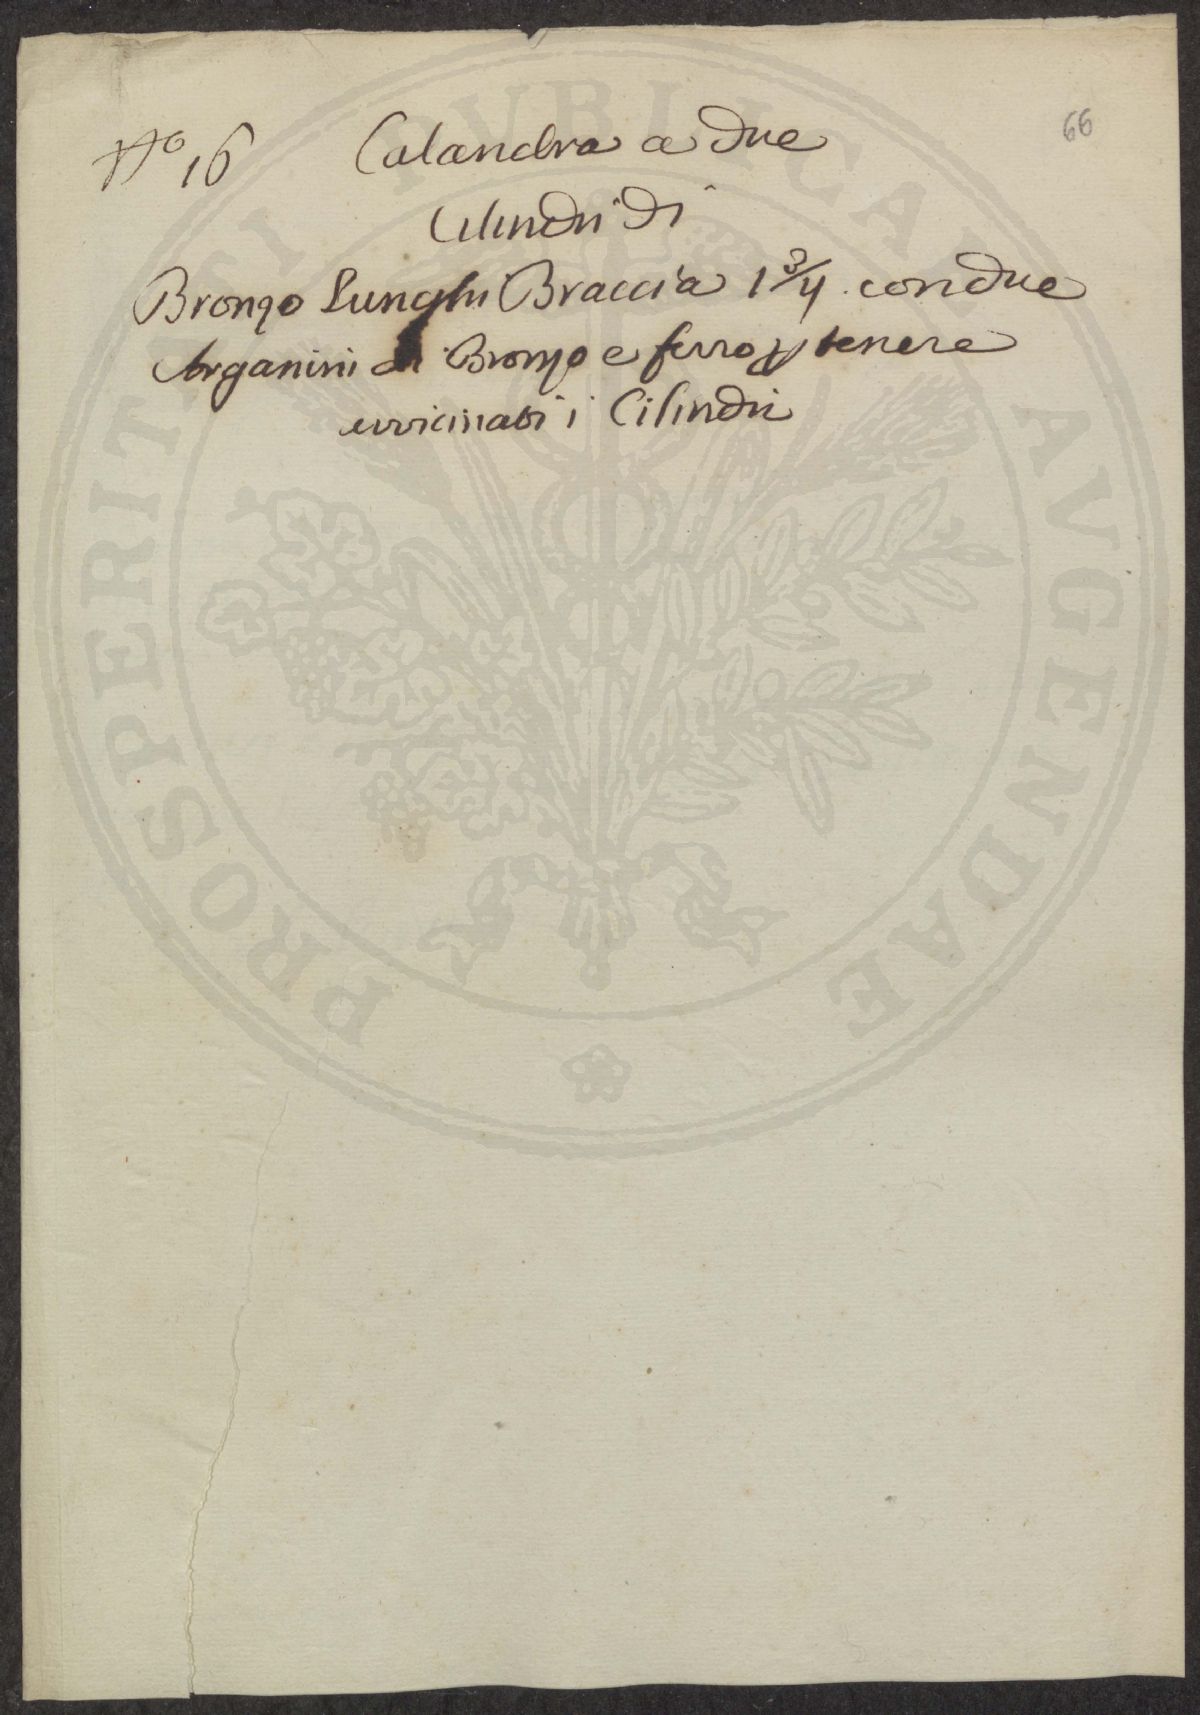 66
No 16 Calandra a due
Cilindri di
Bronzo Lunghi Braccia 1 3/4 con due
Arganini di Bronzo e ferro p tenere
avvicinati i Cilindri
PROSPERITATI PVBLICAE AVGENDAE